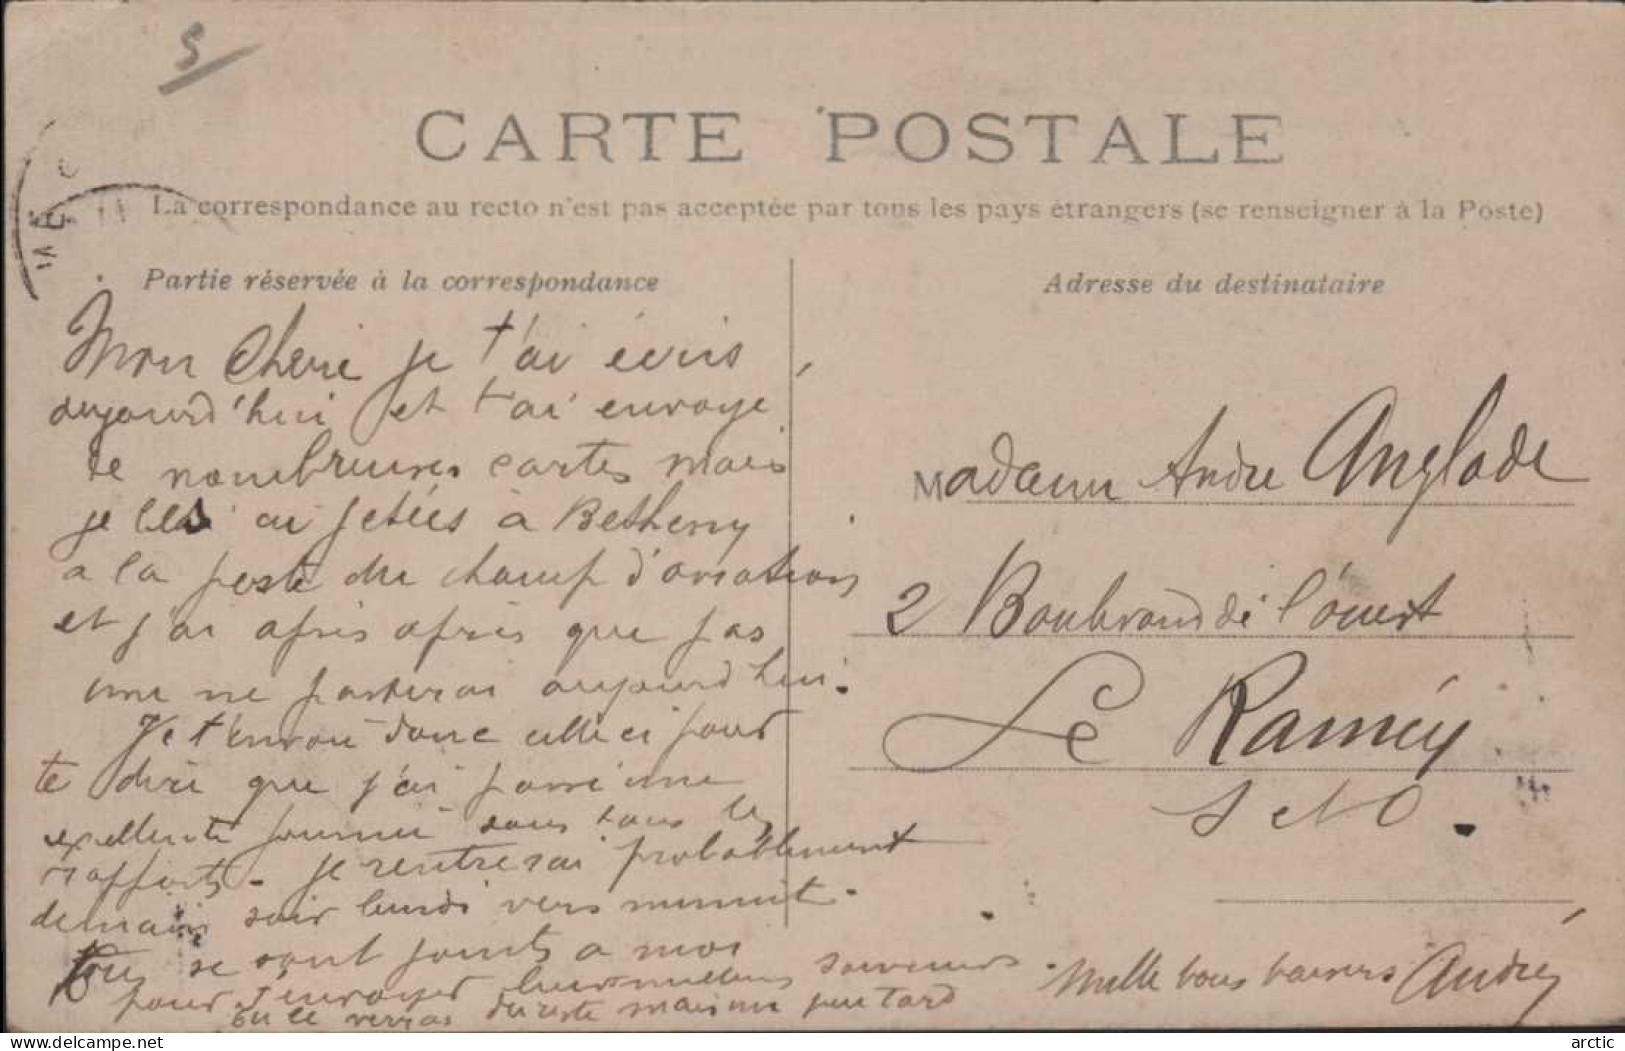 5
CARTE POSTALE
La correspondance au recto n'est pas acceptée par tous les pays étrangers (se renseigner à la Poste)
Partie réservée à la correspondance
Adresse du destinataire
Mon Cherie je t'ai écris
aujourd'hui et t'ai envoye
de nombreuses cartes mais
je les ai jetées à Betheny
a la poste du champ d'aviation
et j'ai apris apris que pas
une ne partirai aujourd'hui.
Je t'envoie donc celle ci pour
te dire que j'ai passé une
excellente journée sous tous les
rapports. Je rentrerai probablement
demain soir lundi vers minuit.
Tous se sont joints a moi
pour t'envoyer leurs meilleurs souvenirs.
tu le verras du reste mais un peu tard
Madame Andre Anglade
2 Boulevard de l'ouest
Le Raincy
S et O.
Mille bons baisers André
arctic